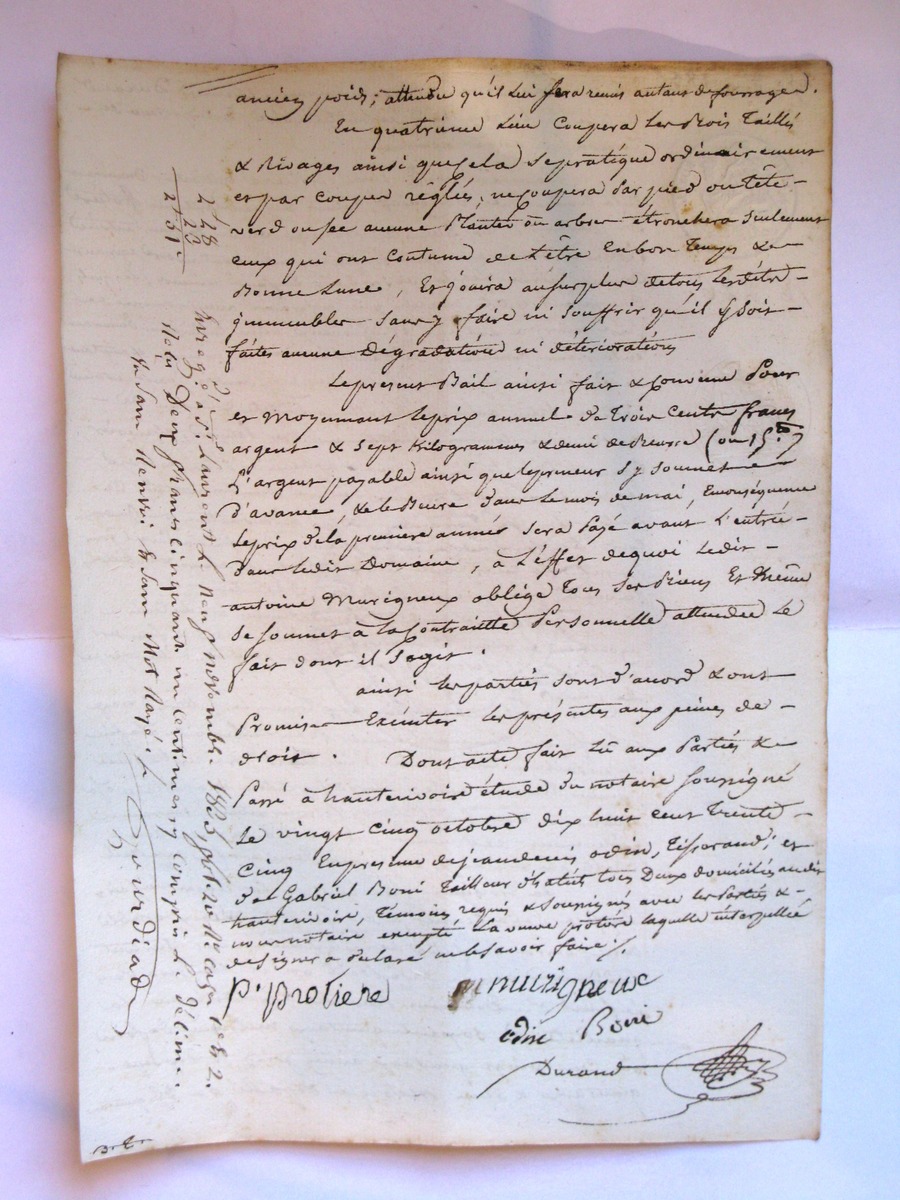 ancien poids ; attendu qu'il lui sera remis autant de fourrages.
En quatrième lieu coupera les Bois Taillis
& Rivages ainsi que cela se pratique ordinairement
et par coupes réglées, ne coupera par pied ou tête
verd ou sec aucune Plantes ou arbres étronchera seulement
ceux qui ont coutume de l'être en bon temps &
Bonne Lune, Et jouira au surplus de tous lesdits
immeubles sans y faire ni souffrir qu'il y soit
faites aucune Dégradations ni détériorations
Le présent Bail ainsi fait & convenu Pour
et Moyennant le prix annuel de Trois Cents francs
argent & sept Kilogrammes & demi de Beurre (ou 15 tt)
L'argent payable ainsi que le preneur s'y soumet
d'avance, & le Beurre dans le mois de mai, En conséquence
le prix de la première année sera Payé avant l'entrée
dans ledit Domaine, à l'éffet de quoi ledit
antoine Murigneux oblige tous ses Biens Et même
se soumet à la Contrainte Personnelle attendu le
fait dont il s'agit.
ainsi les parties sont d'acord & ont
Promis Exécuter les présentes aux peines de
droit. Dont acte fait lû aux Parties &
Passé à hauterivoire étude du notaire soussigné
Le vingt cinq octobre dix huit cent Trente
Cinq En présence de jean denis odin, Tisserand ; et
de Gabriel Boni Tailleur d'habits tous Deux domiciliés audit
hauterivoire, Témoins requis & soussignés avec les Parties &
nous notaire excepté la veuve protière laquelle interpellée
de signer a déclaré ne le savoir faire ./.
P. protiere
murigneux
odin Boni
Durand
2 28
23
2 51
Enreg. é à St Laurent le Neuf novembre 1835 f° 120 R° Cases 1 & 2.
Reçu Deux francs cinquante un centimes y compris le décime
Gourdiade